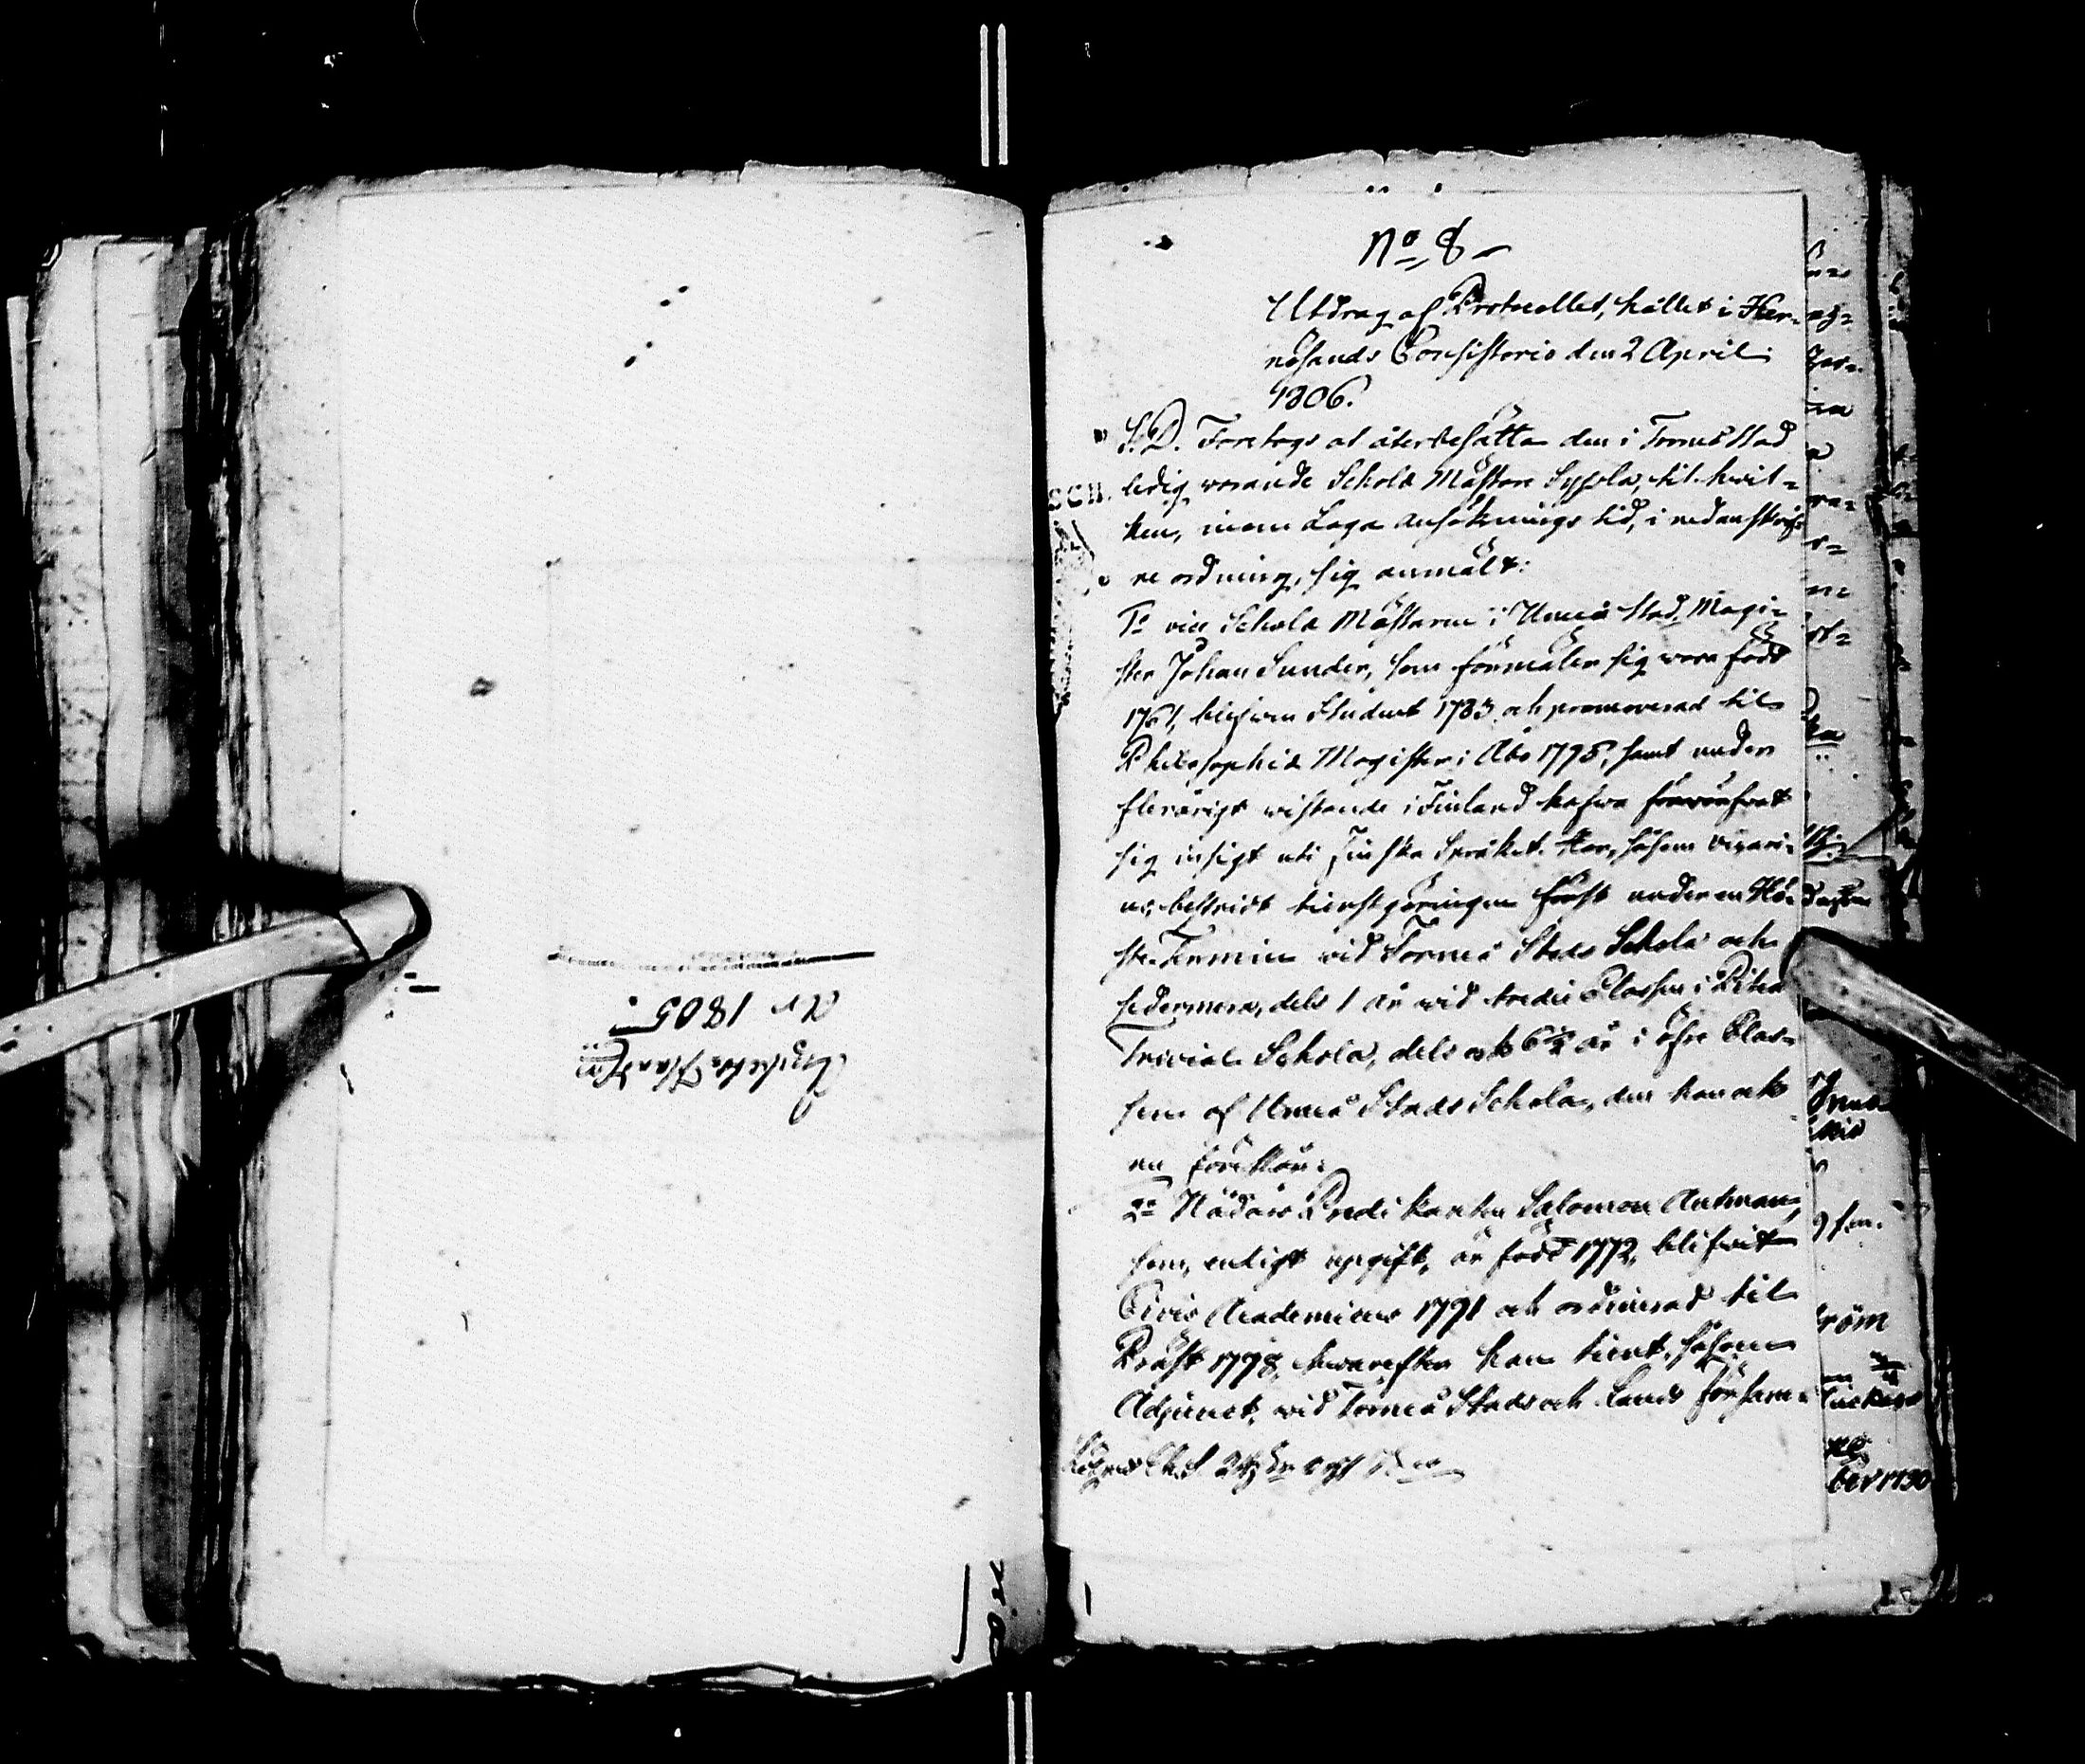 År 1805.
No 8
Utdrag af Protocollet, hållet i Her-
nösands Consistorio den 2 April
1806.
S. D. Företogs at återbesätta den i Torneå Stad
ledig warande Schola Mästare Syssla, til hwil-
ken, inom Laga ansöknings tid, i nedanskrif-
ne ordning, sig anmält:
1o vice Schola Mästaren i Umeå Stad, Magi-
ster Johan Sunder, som förmäler sig wara född
1761, blifwen Student 1783 och promoverad til
Philosophiæ Magister i Åbo 1795, samt under
flerårigt wistande i Finland hafwa förwärfwat
sig insigt uti Finska Språket. Har, såsom vicari-
us, bestridt tienstgöringen först under en Hö-
ste Termin wid Torneå Stads Schola och
sedermera, dels 1 år wid tredie Classen i Piteå
Trivial Schola, dels ock 6½ år i öfre Clas-
sen af Umeå Stads Schola, den han ock
nu förestår:
2o Nådårs Predikanten Salomon Antman,
som, enligt upgift, är född 1772, blifwit
Civis Academicus 1791 och ordinerad til
Präst 1798, hwarefter han tient, såsom
Adjunct, wid Torneå Stads och Lands Försam-